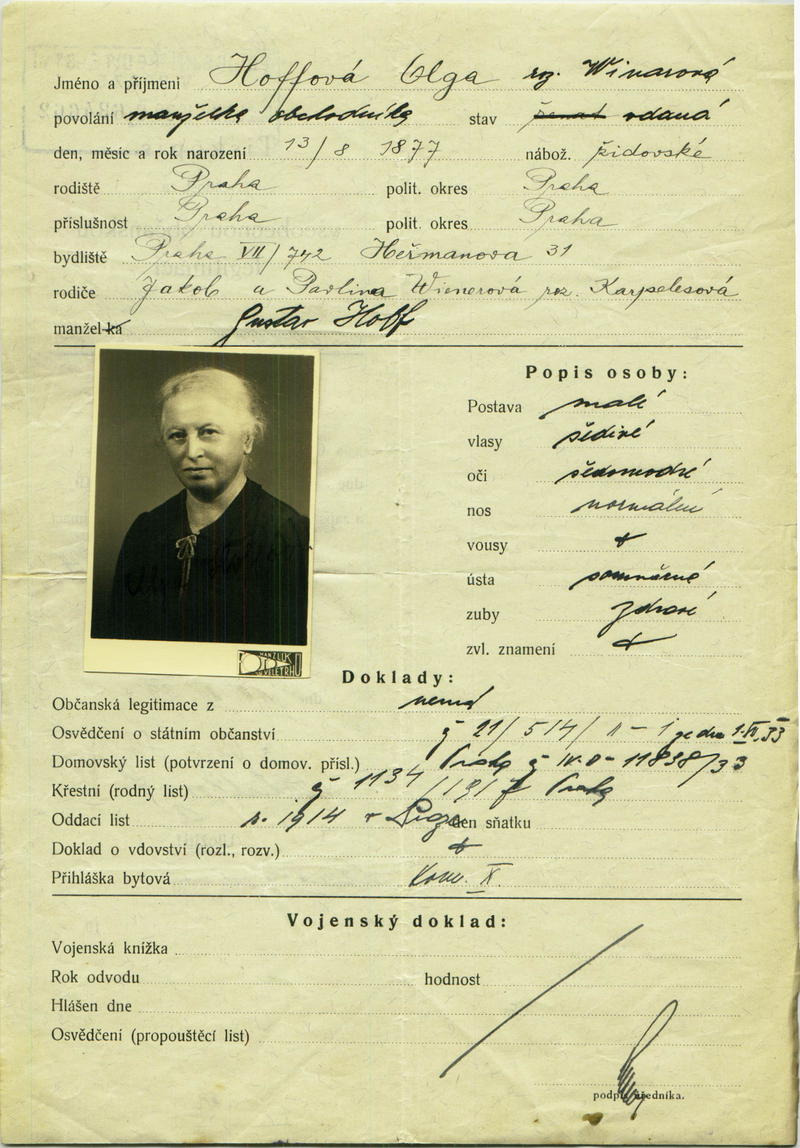 Jméno a příjmeni Hoffová Olga roz. Winarová
povolání manželka obchodníka stav ženat vdaná
den, měsíc a rok narození 13/8 1877 nábož. židovské
rodiště Praha polit. okres Praha
příslušnost Praha polit. okres Praha
bydliště Praha VII/742 Heřmanova 31
rodiče Jakob a Pavlina Wienerová roz. Karpelesová
manžel-ka Gustav Hoff
Popis osoby:
Postava malé
vlasy šedivé
oči šedomodré
nos normální
vousy
ústa souměrné
zuby zdravé
zvl. znamení
Doklady:
Občanská legitimace z nemá
Osvědčení o státním občanství č 21/514/
Domovský list (potvrzení o domov. přísl.) Praha č IV. 11838/33
Křestní (rodný list) č 1134 Praha
Oddací list r. 1914 v den sňatku
Doklad o vdovství (rozl., rozv.)
Přihláška bytová Kom. X.
Vojenský doklad:
Vojenská knížka
Rok odvodu hodnost
Hlášen dne
Osvědčení (propouštěcí list)
podpis úředníka.